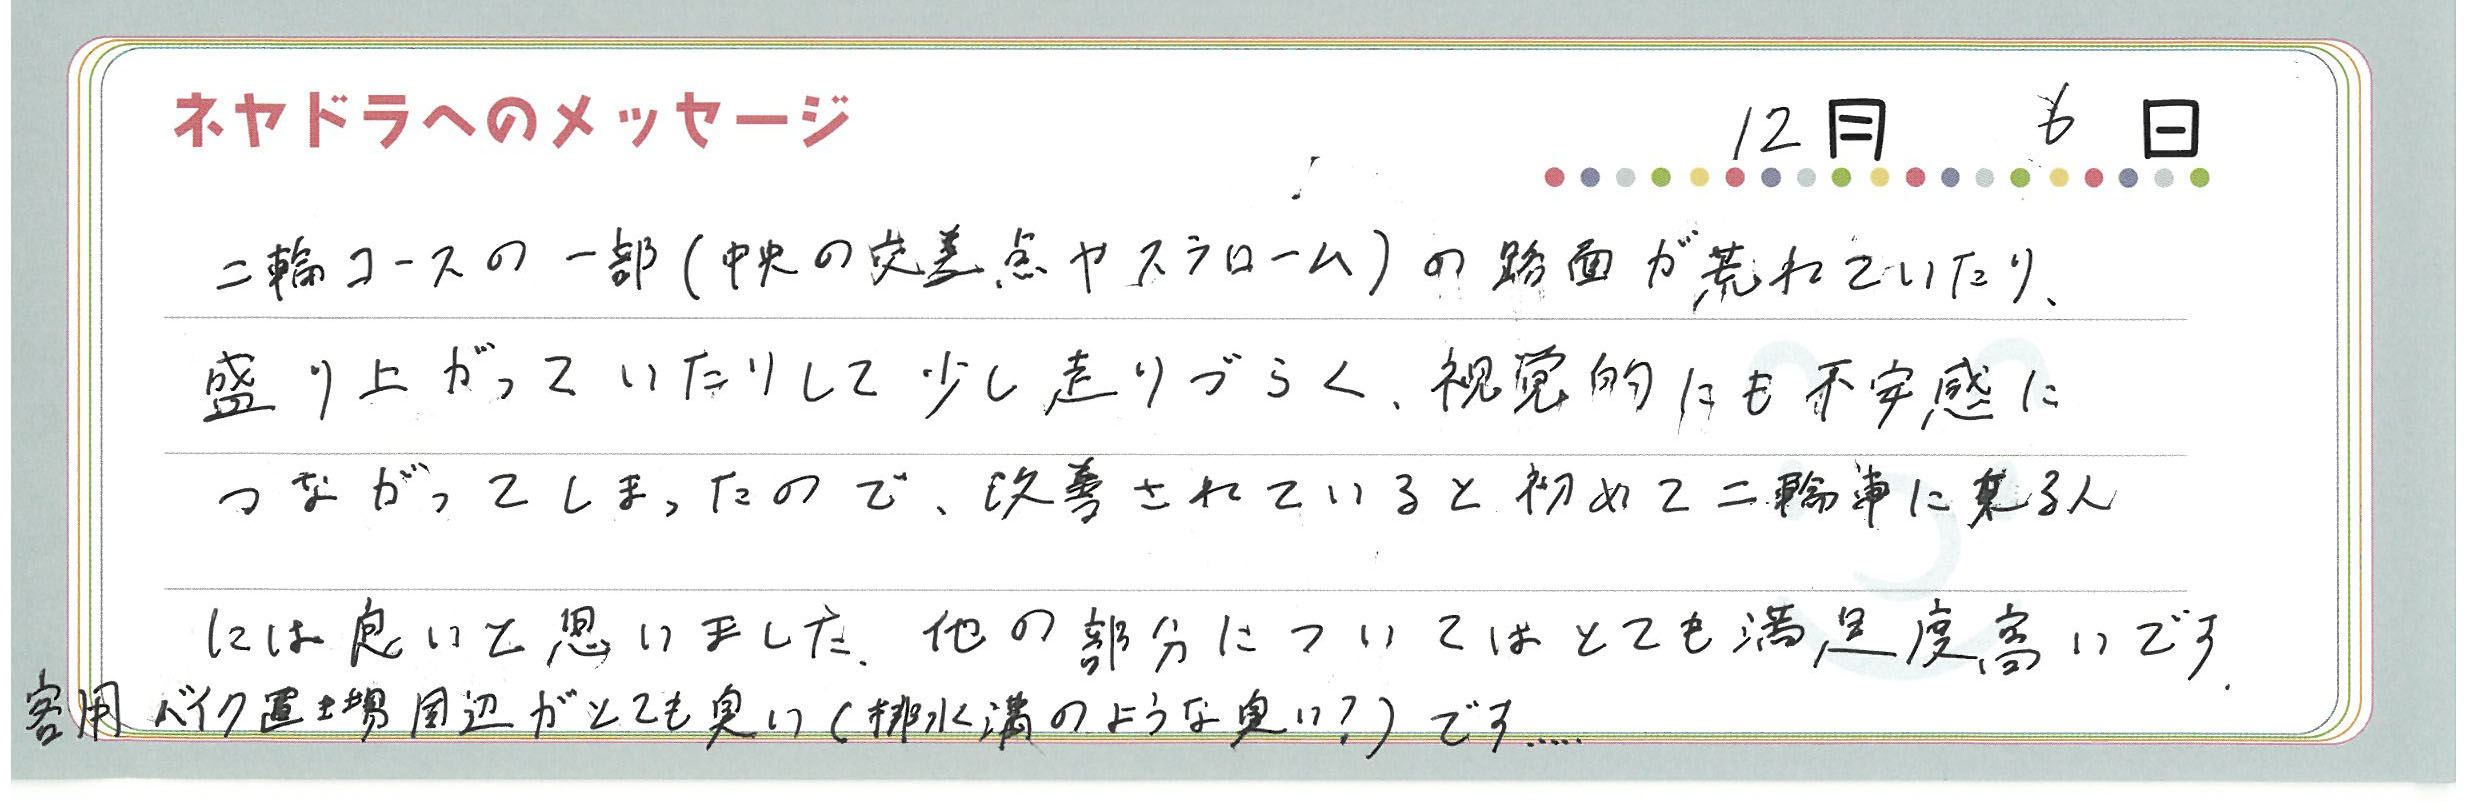 ネヤドラへのメッセージ
12月 6日
二輪コースの一部(中央の交差点やスラローム)の路面が荒れていたり、
盛り上がっていたりして少し走りづらく、視覚的にも不安感に
つながってしまったので、改善されていると初めて二輪車に乗る人
には良いと思いました。他の部分についてはとても満足度高いです。
客用バイク置き場周辺がとても臭い(排水溝のような臭い?)です.....